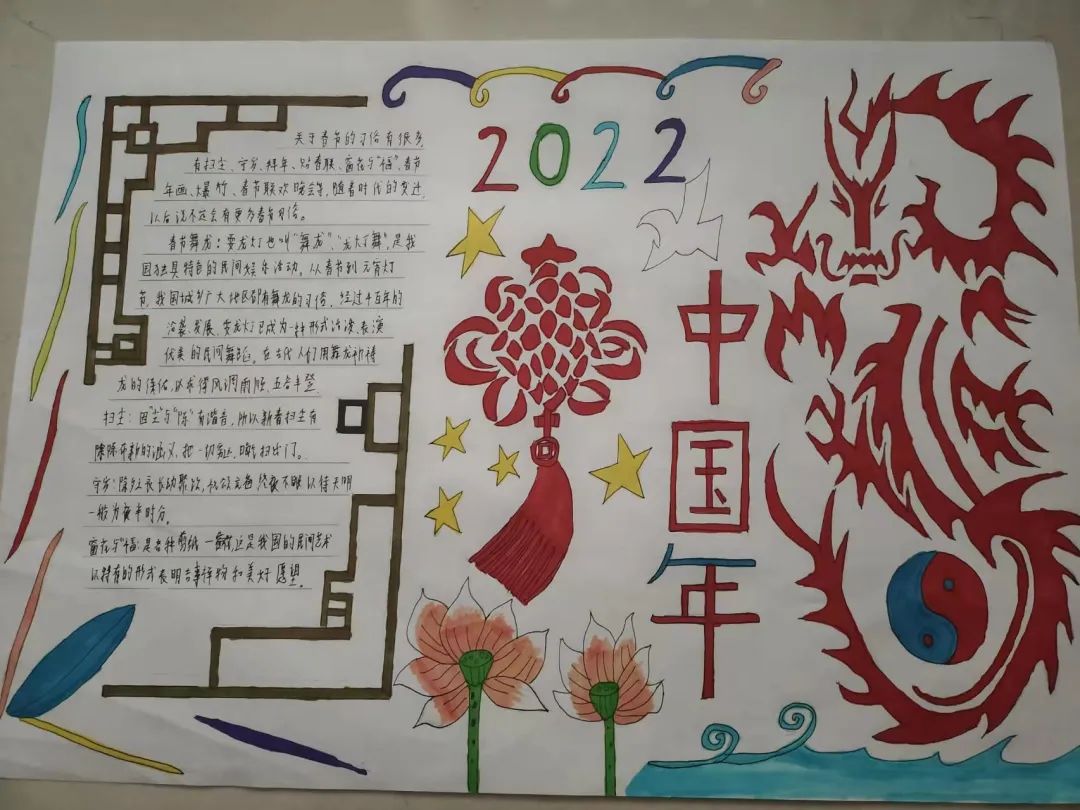 2022
中国年
关于春节的习俗有很多,
有扫尘、守岁、拜年、贴春联、窗花与"福"、春节
年画、爆竹、春节联欢晚会等,随着时代的变迁,
以后说不定会有更多春节习俗。
春节舞龙:耍龙灯也叫"舞龙"、"龙灯舞",是我
国独具特色的民间娱乐活动。从春节到元宵灯
节,我国城乡广大地区都有舞龙的习俗。经过千百年的
沿袭、发展,耍龙灯已成为一种形式活泼、表演
优美的民间舞蹈。在古代人们用舞龙祈祷
龙的保佑,以求得风调雨顺,五谷丰登
扫尘:因"尘"与"陈"有谐音,所以新春扫尘有
除陈布新的涵义,把一切 扫出门。
守岁:除夕 终夜不眠以待天明
一般为夜半时分。
窗花与"福"是各种剪纸 这是我国的民间艺术
以特有的形式表明吉事祥物和美好愿望。